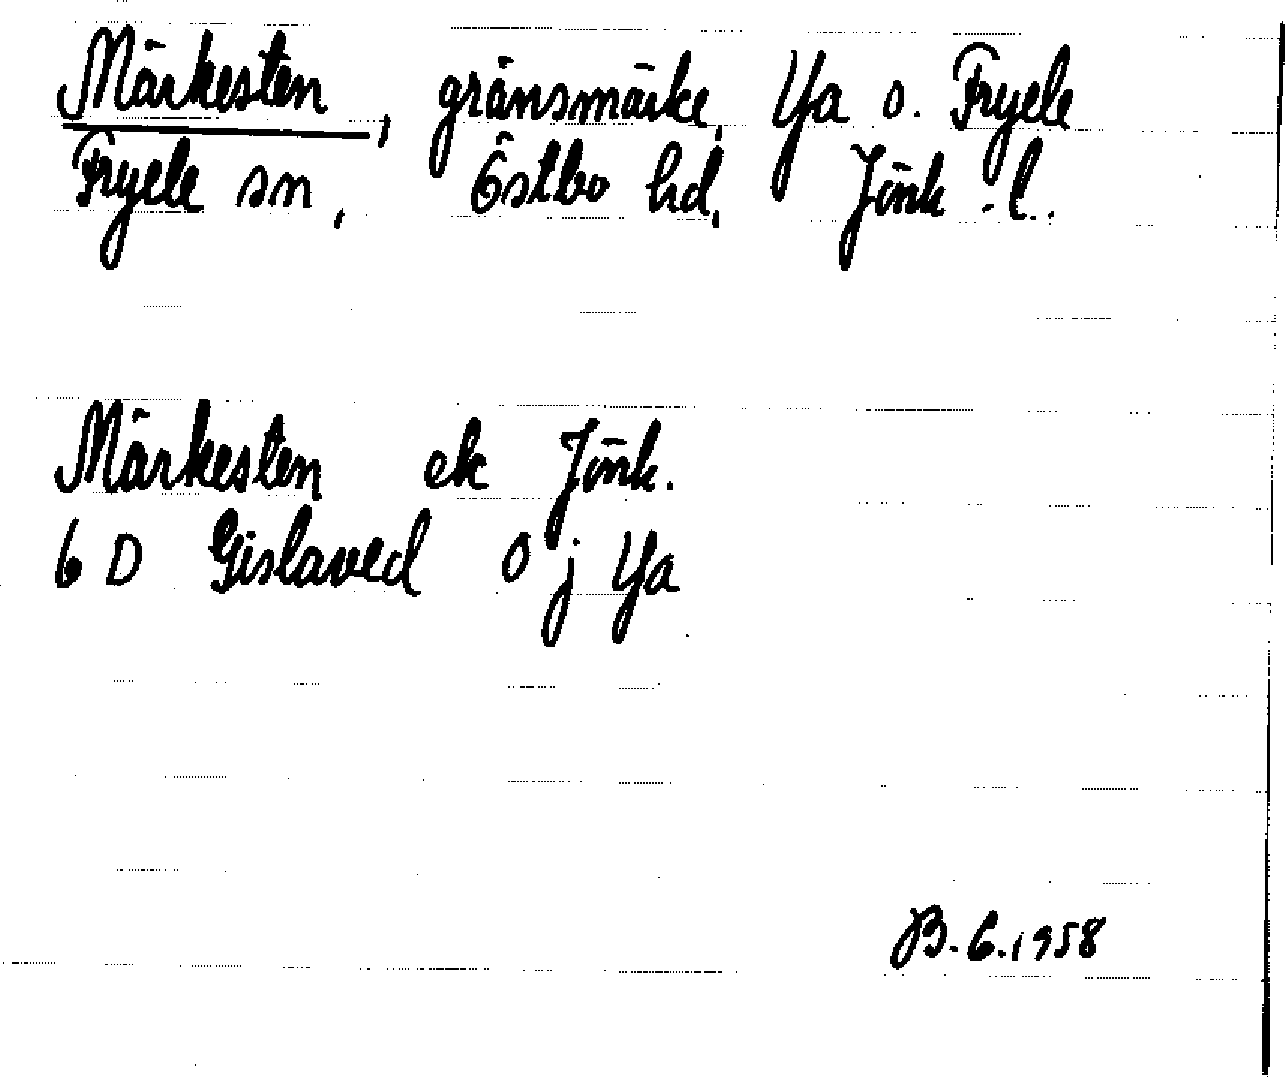 Märkesten, gränsmärke, Ya o. Fryele
Fryele sn, Östbo hd, Jönk. l.
Märkesten ek Jönk.
6 D Gislaved 0 j Ya
B. G. 1958